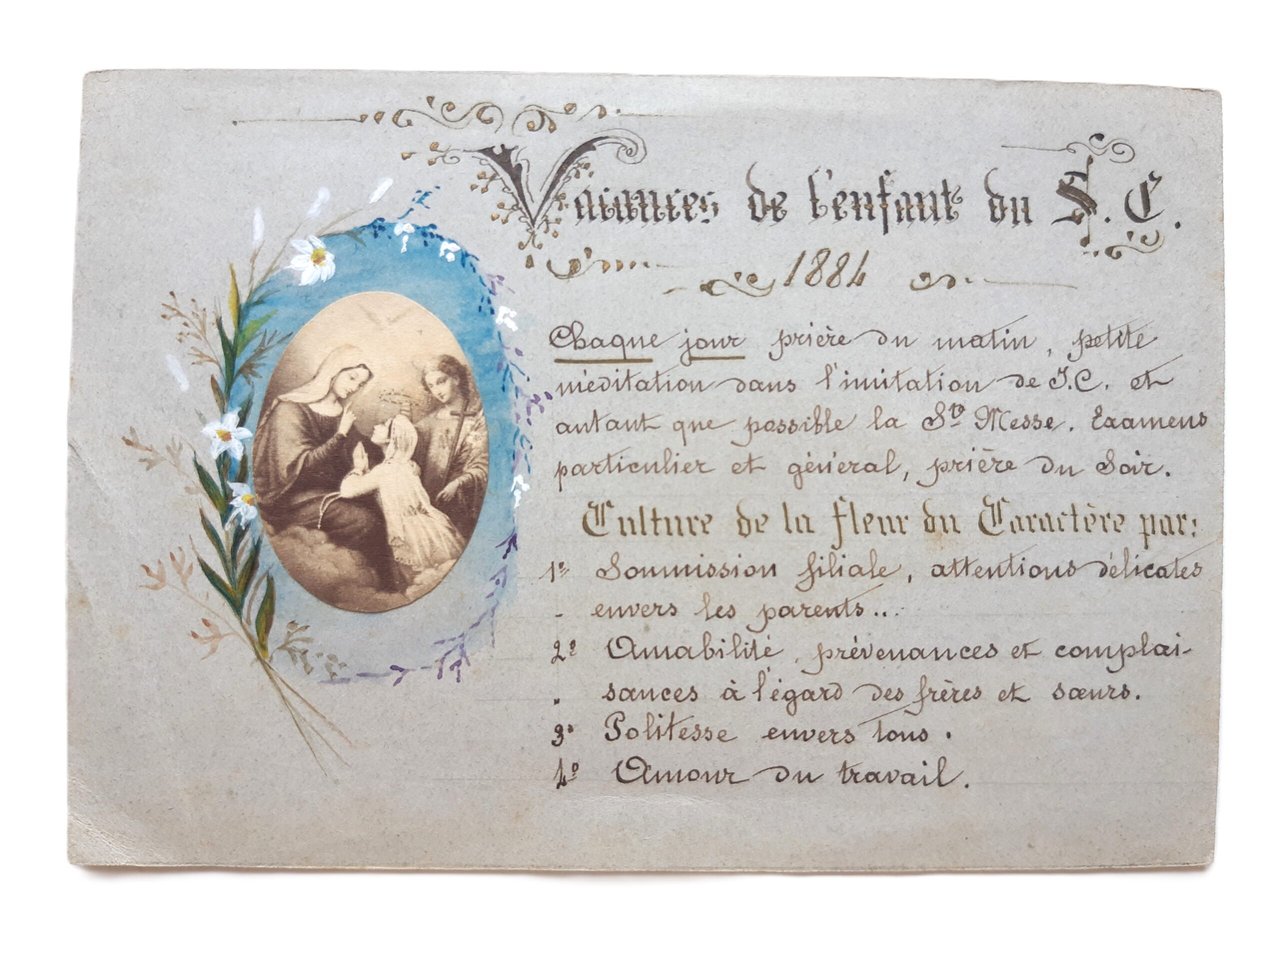 Vacances de l'enfant du S. C.
1884
Chaque jour prière du matin, petite
méditation dans l'imitation de J.C. et
autant que possible la Ste Messe. Examens
particulier et général, prière du Soir.
Culture de la fleur du Caractère par:
1º Soumission filiale, attentions délicates
- envers les parents...
2º Amabilité, prévenances et complai-
. sances à l'égard des frères et sœurs.
3º Politesse envers tous.
4º Amour du travail.